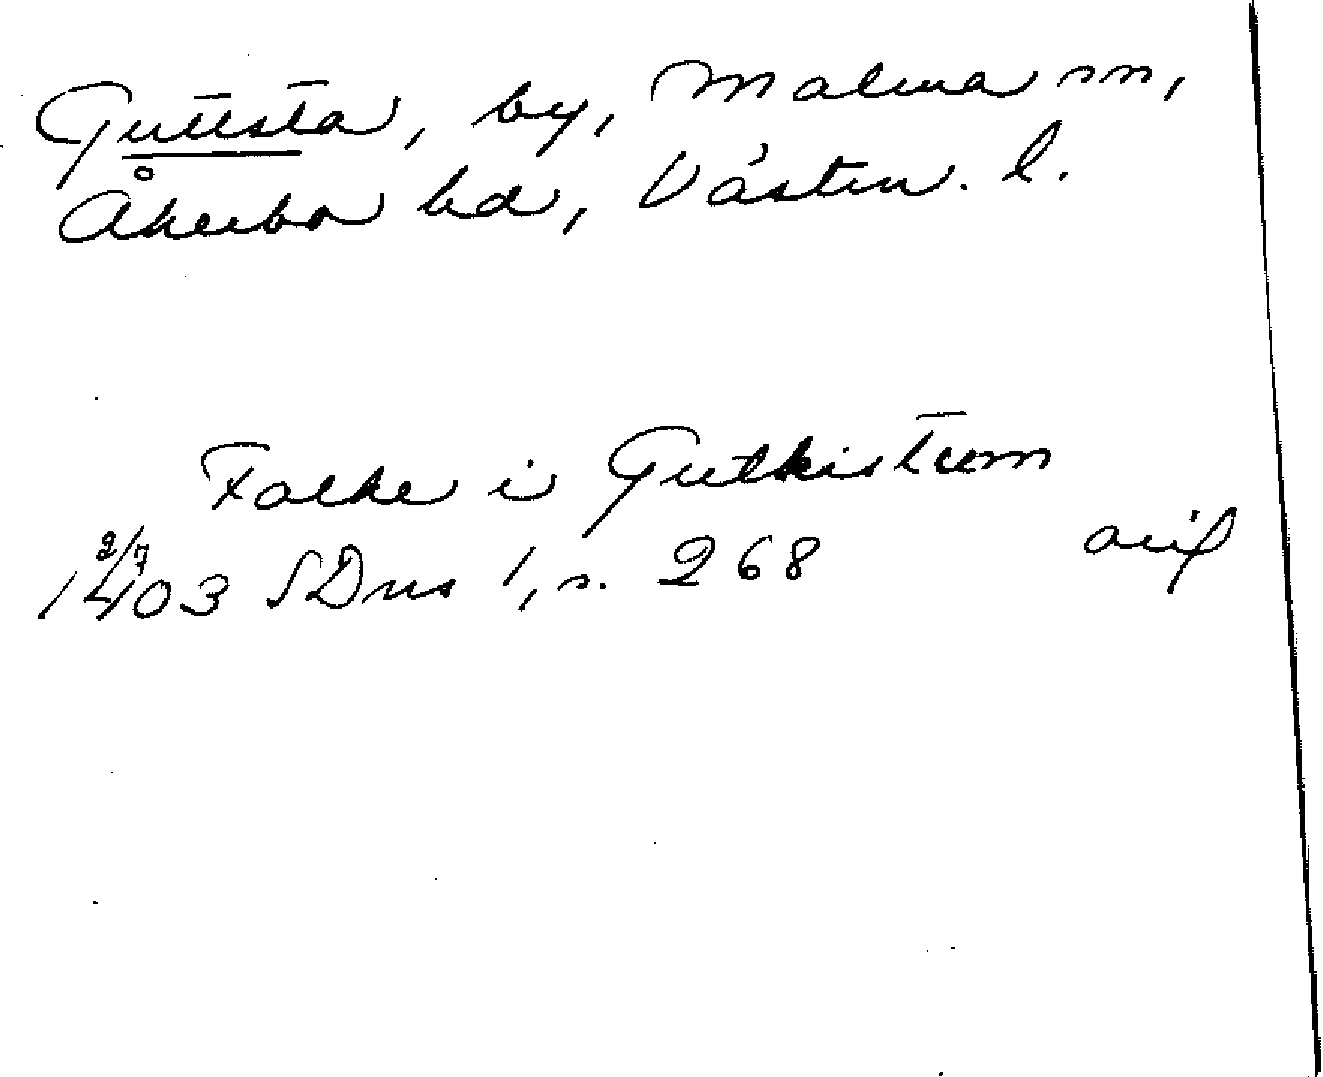 Guttsta, by, Malma sn,
Åkerbo hd, Västm. l.
Falke i Gutkistum
2/7
1403 SDns 1, s. 268 avif